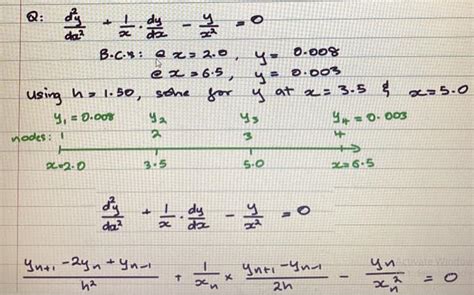 Q: d²y/da² + 1/x · dy/dx - y/x² = 0
B.C.s: @ x = 2.0, y = 0.008
@ x = 6.5, y = 0.003
Using h = 1.50, solve for y at x = 3.5 & x = 5.0
y₁ = 0.008 y₂ y₃ y₄ = 0.003
nodes: 1 2 3 4
x=2.0 3.5 5.0 x=6.5
d²y/da² + 1/x · dy/dx - y/x² = 0
(yₙ₊₁ - 2yₙ + yₙ₋₁)/h² + 1/xₙ × (yₙ₊₁ - yₙ₋₁)/2h - yₙ/xₙ² = 0
Activate Windows